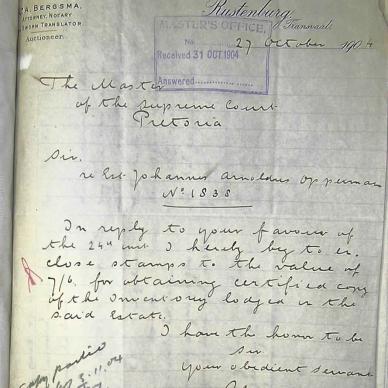 A. BERGSMA,
ATTORNEY, NOTARY
SWORN TRANSLATOR.
Auctioneer.
Rustenburg,
Transvaal
27 October 1904
MASTER'S OFFICE,
No.
Received 31 OCT. 1904
Answered
The Master
of the Supreme Court
Pretoria
Sir,
re Est. Johannes Arnoldus Opperman
No 1838
In reply to your favour of
the 24th inst I hereby beg to en-
close stamps to the value of
7/6 for obtaining certified copy
of the Inventory lodged in the
said Estate.
I have the honor to be
Sir
your obedient servant
copy
3.11.04